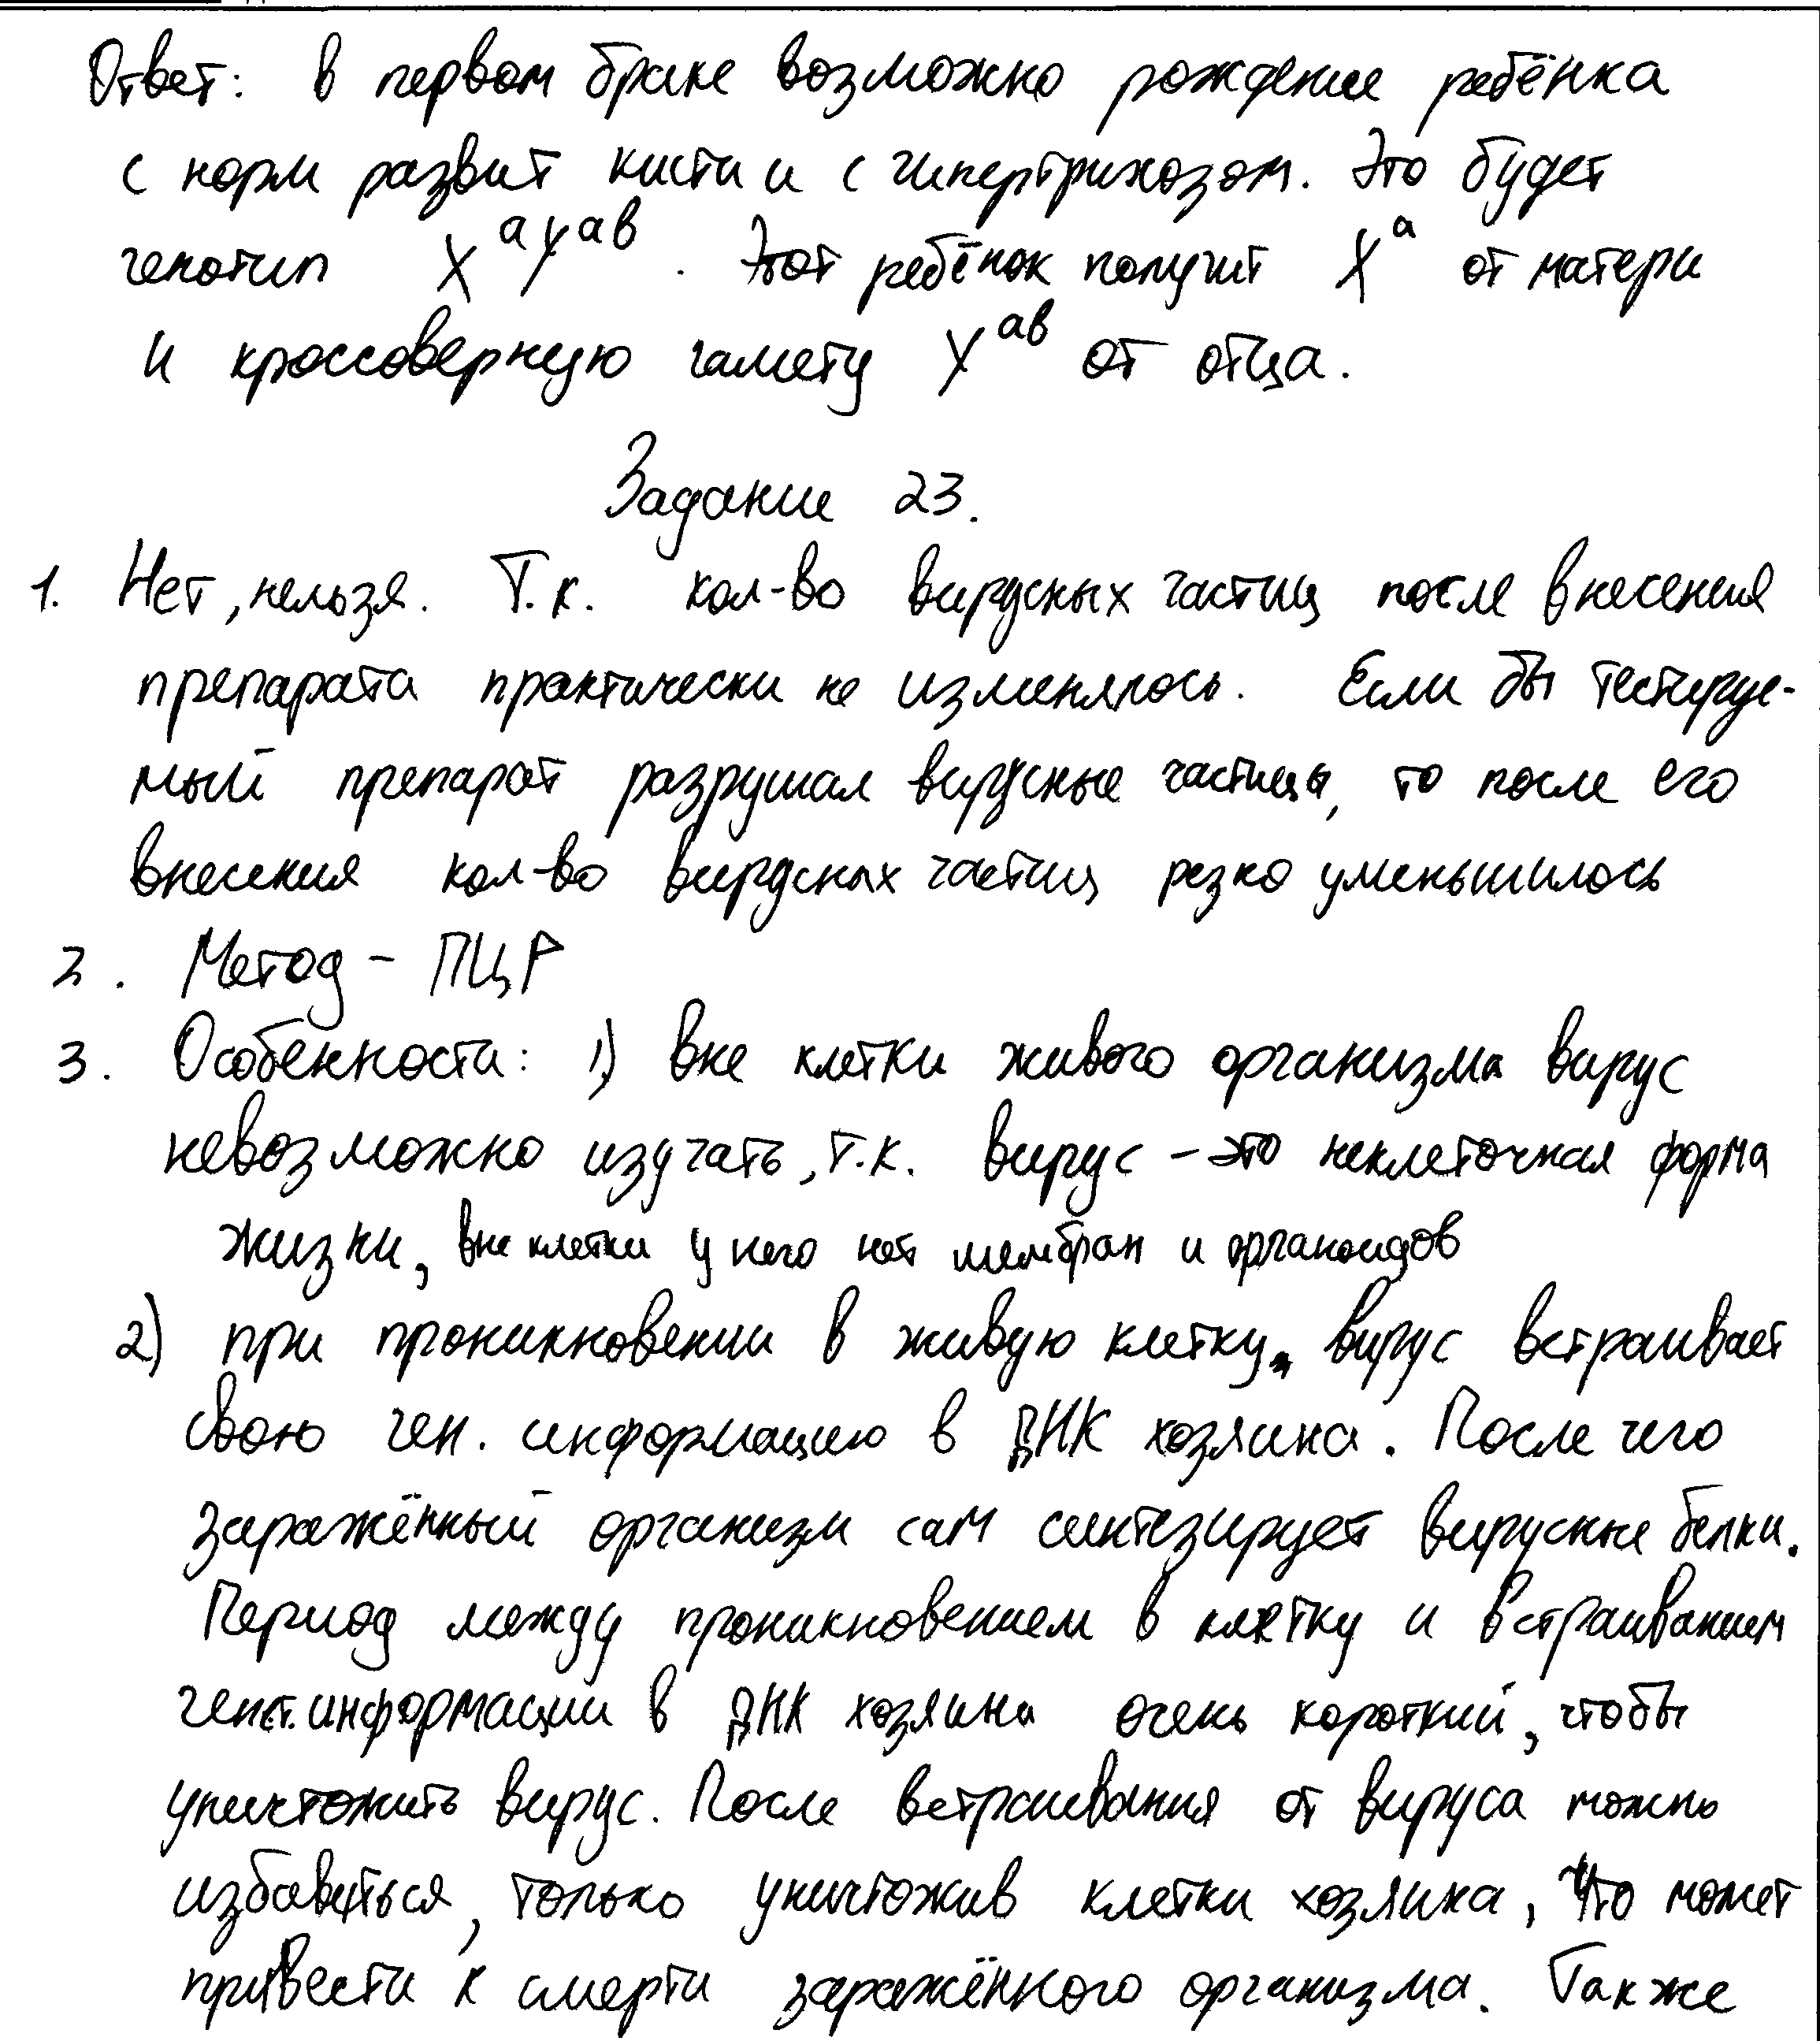 Ответ: в первом браке возможно рождение ребёнка
с норм развит кисти и с гипертрихозом. Это будет
генотип X^a Y^ab. Этот ребёнок получит X^a от матери
и кроссоверную гамету Y^ab от отца.
Задание 23.
1. Нет, нельзя. Т.к. кол-во вирусных частиц после внесения
препарата практически не изменялось. Если бы тестируе-
мый препарат разрушал вирусные частицы, то после его
внесения кол-во вирусных частиц резко уменьшилось
2. Метод - ПЦР
3. Особенности: 1) вне клетки живого организма вирус
невозможно изучать, т.к. вирус - это неклеточная форма
жизни, вне клетки у него нет мембран и органоидов
2) при проникновении в живую клетку, вирус встраивает
свою ген. информацию в ДНК хозяина. После чего
заражённый организм сам синтезирует вирусные белки.
Период между проникновением в клетку и встраиванием
генет. информации в ДНК хозяина очень короткий, чтобы
уничтожить вирус. После встраивания от вируса можно
избавиться, только уничтожив клетки хозяина, что может
привести к смерти заражённого организма. Также